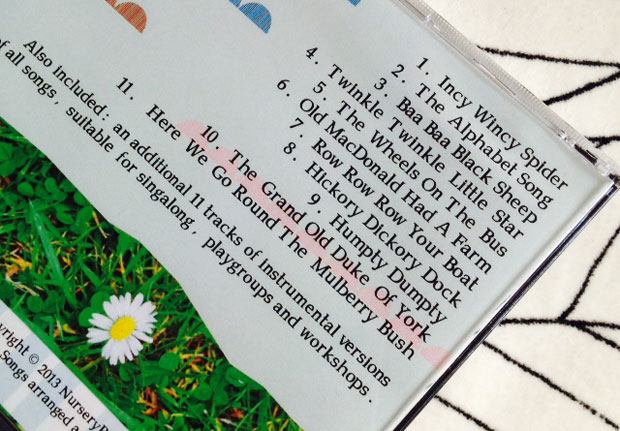 1. Incy Wincy Spider
2. The Alphabet Song
3. Baa Baa Black Sheep
4. Twinkle Twinkle Little Star
5. The Wheels On The Bus
6. Old MacDonald Had A Farm
7. Row Row Row Your Boat
8. Hickory Dickory Dock
9. Humpty Dumpty
10. The Grand Old Duke Of York
11. Here We Go Round The Mulberry Bush
Also included: an additional 11 tracks of instrumental versions
of all songs, suitable for singalong, playgroups and workshops.
© 2013
Songs arranged